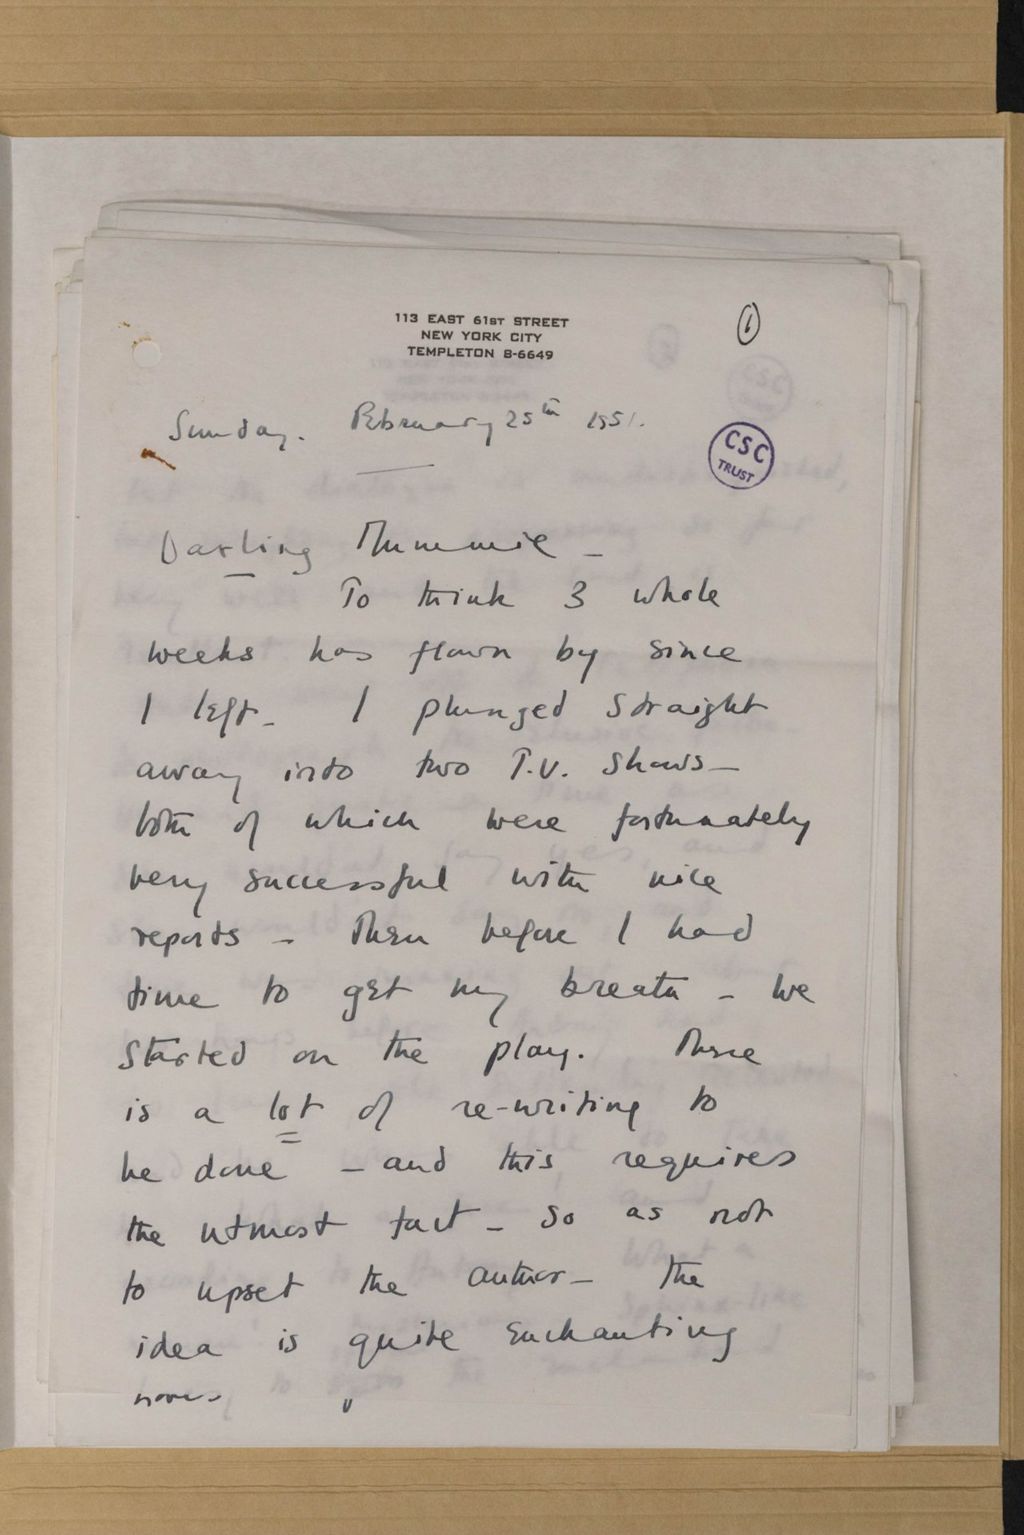 113 EAST 61ST STREET
NEW YORK CITY
TEMPLETON 8-6649
Sunday. February 25th 1951.
CSC
TRUST
Darling Mummie –
To think 3 whole
weeks has flown by since
I left – I plunged straight
away into two T.V. shows –
both of which were fortunately
very successful with nice
reports – Then before I had
time to get my breath – we
started on the play. There
is a lot of re-writing to
be done – and this requires
the utmost tact – so as not
to upset the author – The
idea is quite enchanting